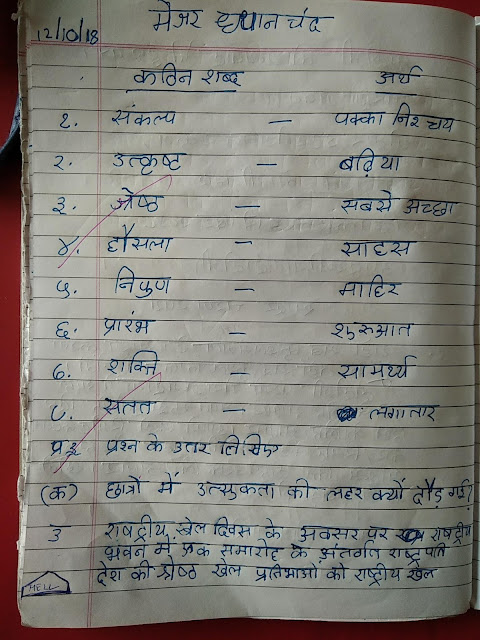 12/10/18 मेजर ध्यान चंद
कठिन शब्द अर्थ
१. संकल्प — पक्का निश्चय
२. उत्कृष्ट — बढ़िया
३. श्रेष्ठ — सबसे अच्छा
४. हौसला — साहस
५. निपुण — माहिर
६. प्रारंभ — शुरुआत
७. शक्ति — सामर्थ्य
८. सतत — लगातार
प्रश्न के उत्तर लिखिए
(क) छात्रों में उत्सुकता की लहर क्यों दौड़ गई?
उ राष्ट्रीय खेल दिवस के अवसर पर राष्ट्रीय
भवन में एक समारोह के अंतर्गत राष्ट्रपति
देश की श्रेष्ठ खेल प्रतिभाओं को राष्ट्रीय खेल